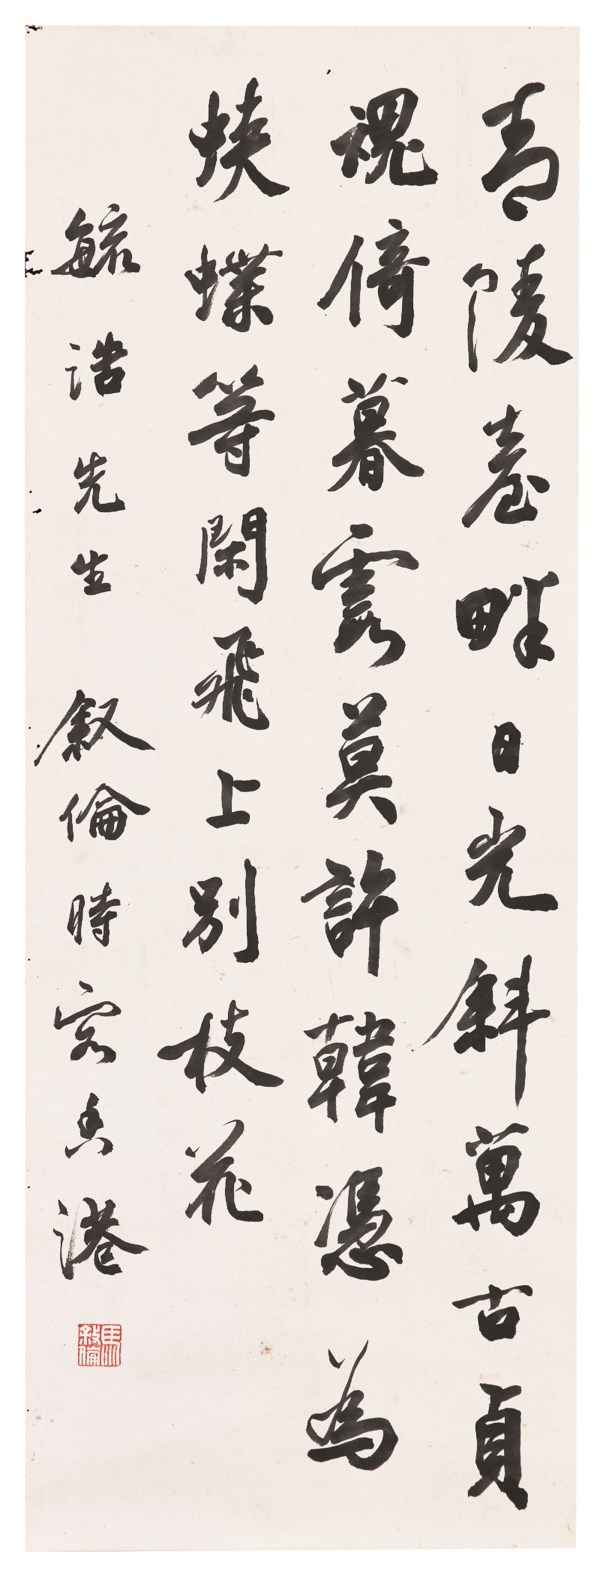 青陵臺畔日光斜萬古貞
魂倚暮霞莫許韓憑為
蛺蝶等閑飛上別枝花
毓浩先生 敘倫時客香港
馬敘倫